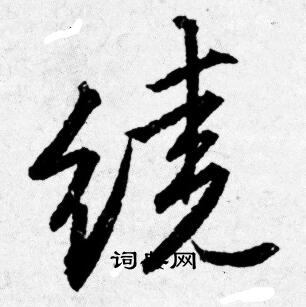 绩
词典网